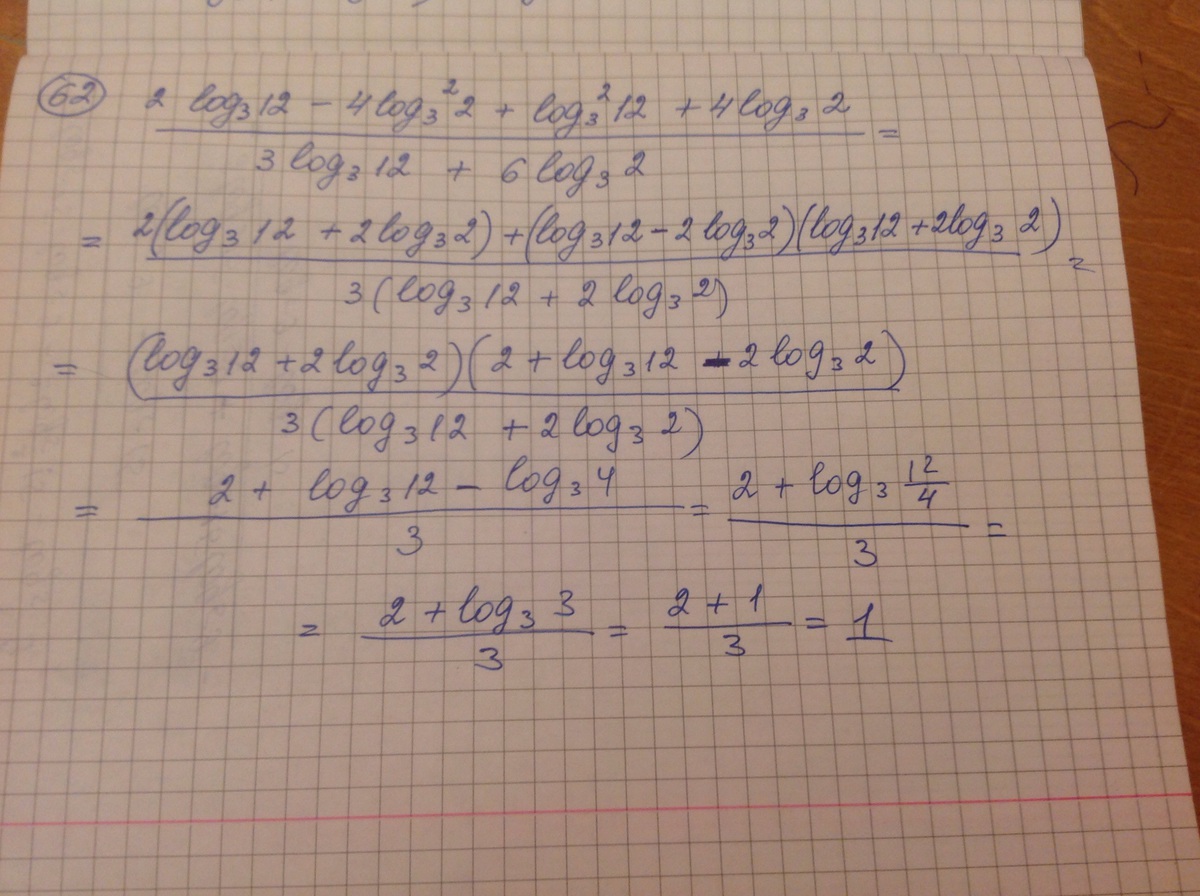 62) (2 log₃12 − 4log₃²2 + log₃²12 + 4log₃2) / (3 log₃12 + 6 log₃2) =
= (2(log₃12 + 2log₃2) + (log₃12 − 2log₃2)(log₃12 + 2log₃2)) / (3(log₃12 + 2log₃2)) =
= ((log₃12 + 2log₃2)(2 + log₃12 − 2log₃2)) / (3(log₃12 + 2log₃2))
= (2 + log₃12 − log₃4) / 3 = (2 + log₃ 12/4) / 3 =
= (2 + log₃3) / 3 = (2 + 1) / 3 = 1